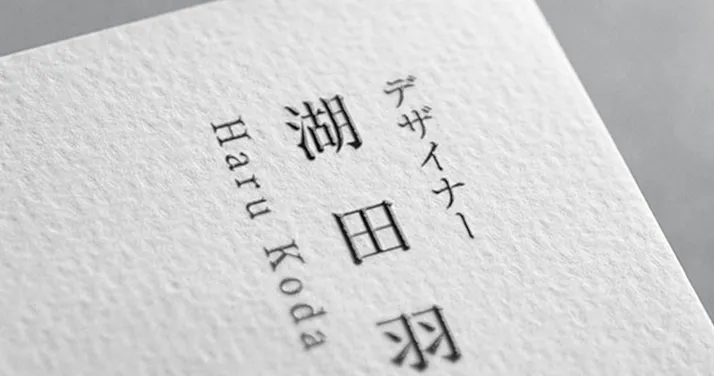 デザイナー
湖田羽
Haru Koda